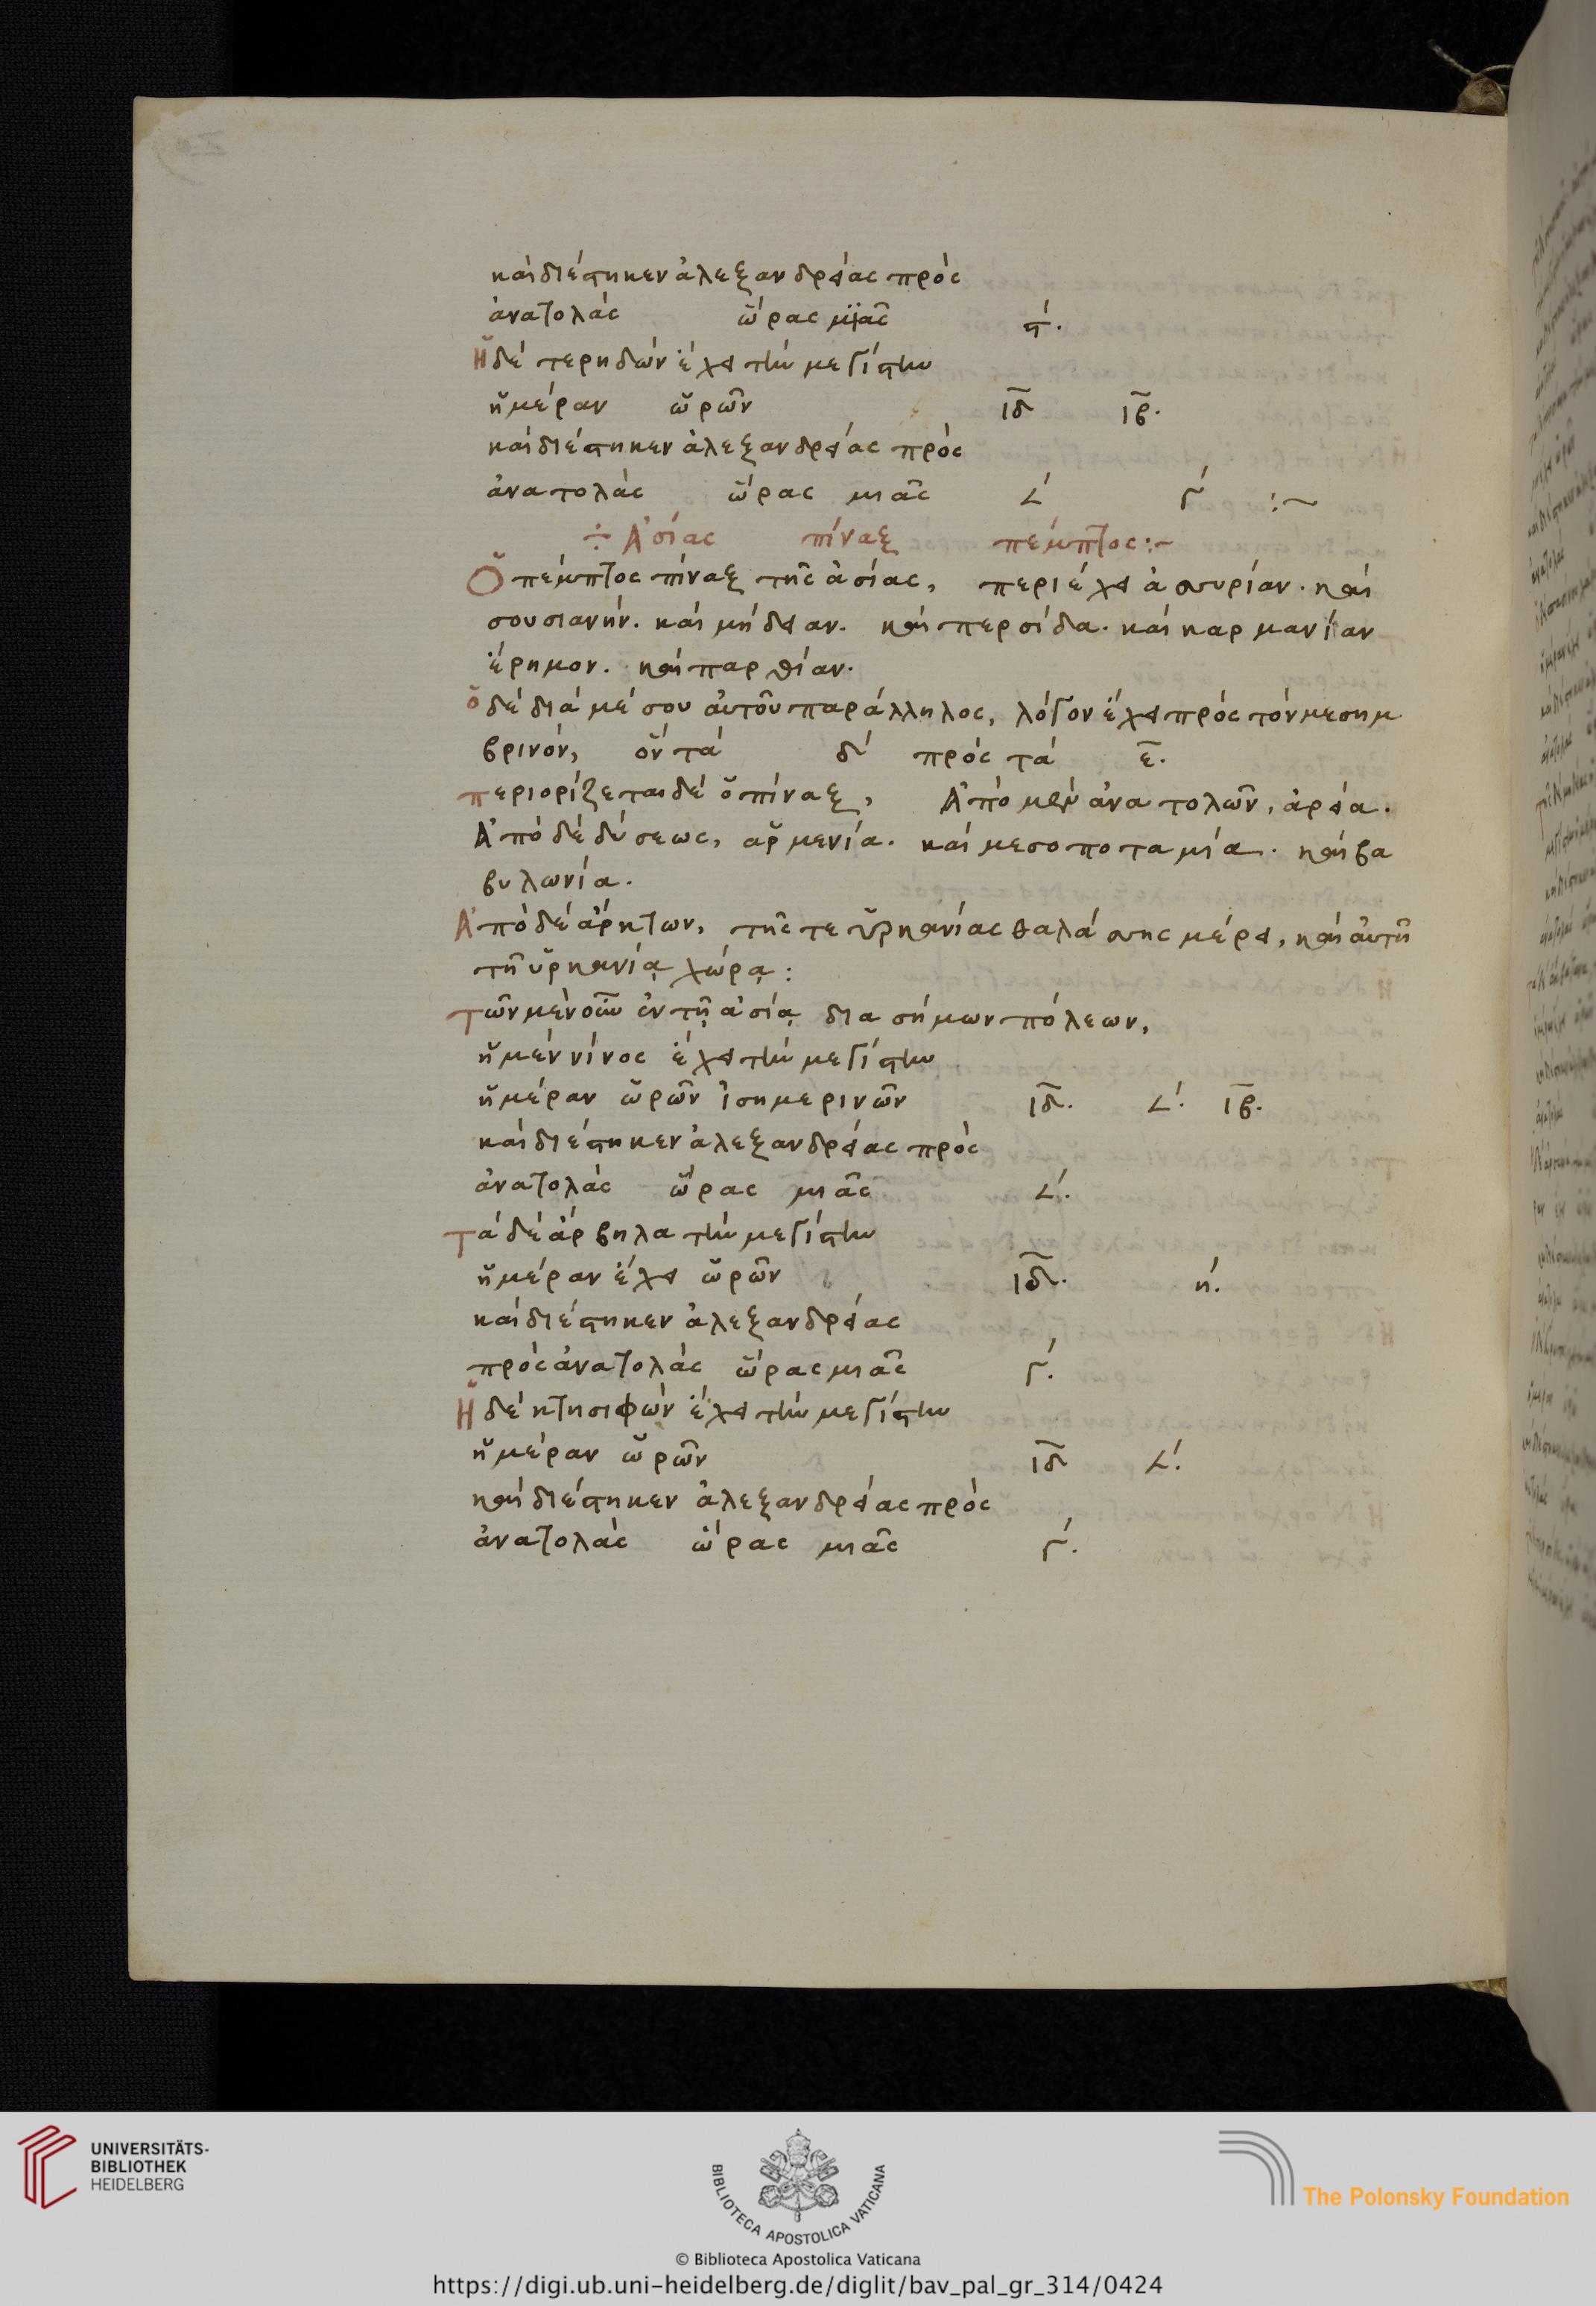 καὶ διέστηκεν ἀλεξανδρείας πρὸς
ἀνατολὰς ὥρας μιᾶς ϛ´.
ἡ δὲ τερηδὼν ἔχει τὴν μεγίστην
ἡμέραν ὡρῶν ιδ ιβ.
καὶ διέστηκεν ἀλεξανδρείας πρὸς
ἀνατολὰς ὥρας μιᾶς 𐅵´ γ´ :~
÷ Ἀσίας πίναξ πέμπτος :~
Ὁ πέμπτος πίναξ τῆς ἀσίας, περιέχει ἀσσυρίαν. καὶ
σουσιανήν. καὶ μήδειαν. καὶ περσίδα. καὶ καρμανίαν
ἔρημον. καὶ παρθίαν.
ὁ δὲ διὰ μέσου αὐτοῦ παράλληλος, λόγον ἔχει πρὸς τὸν μεσημ
βρινόν, ὃν τὰ δ´ πρὸς τὰ ε.
περιορίζεται δὲ ὁ πίναξ, Ἀπὸ μὲν ἀνατολῶν, ἀρεία.
Ἀπὸ δὲ δύσεως, ἀρμενία. καὶ μεσοποταμία. καὶ βα
βυλωνία.
Ἀπὸ δὲ ἄρκτων, τῆς τε ὑρκανίας θαλάσσης μέρει, καὶ αὐτῇ
τῇ ὑρκανίᾳ χώρᾳ :
τῶν μὲν οὖν ἐν τῇ ἀσίᾳ διασήμων πόλεων,
ἡ μὲν νίνος ἔχει τὴν μεγίστην
ἡμέραν ὡρῶν ἰσημερινῶν ιδ. 𐅵´. ιβ.
καὶ διέστηκεν ἀλεξανδρείας πρὸς
ἀνατολὰς ὥρας μιᾶς 𐅵´.
τὰ δὲ ἄρβηλα τὴν μεγίστην
ἡμέραν ἔχει ὡρῶν ιδ. η´.
καὶ διέστηκεν ἀλεξανδρείας
πρὸς ἀνατολὰς ὥρας μιᾶς γ´.
Ἡ δὲ κτησιφὼν ἔχει τὴν μεγίστην
ἡμέραν ὡρῶν ιδ 𐅵´.
καὶ διέστηκεν ἀλεξανδρείας πρὸς
ἀνατολὰς ὥρας μιᾶς γ´.
UNIVERSITÄTS-
BIBLIOTHEK
HEIDELBERG
BIBLIOTECA APOSTOLICA VATICANA
The Polonsky Foundation
© Biblioteca Apostolica Vaticana
https://digi.ub.uni-heidelberg.de/diglit/bav_pal_gr_314/0424